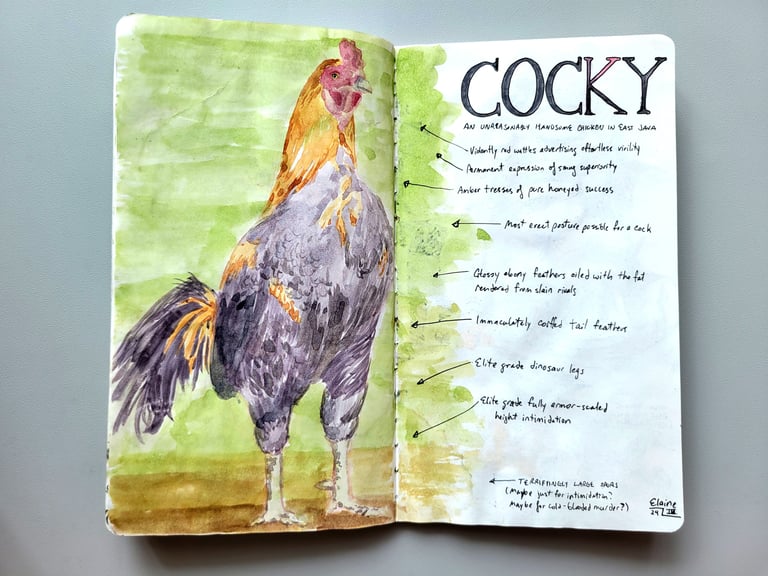 COCKY
AN UNREASONABLY HANDSOME CHICKEN IN EAST JAVA
Violently red wattles advertising effortless virility
Permanent expression of smug superiority
Amber tresses of pure honeyed success
Most erect posture possible for a cock
Glossy ebony feathers oiled with the fat
rendered from slain rivals
Immaculately coiffed tail feathers
Elite grade dinosaur legs
Elite grade fully armor-scaled
height intimidation
TERRIFYINGLY LARGE SPURS
(Maybe just for intimidation?
Maybe for cold-blooded murder?)
Elaine
24 III